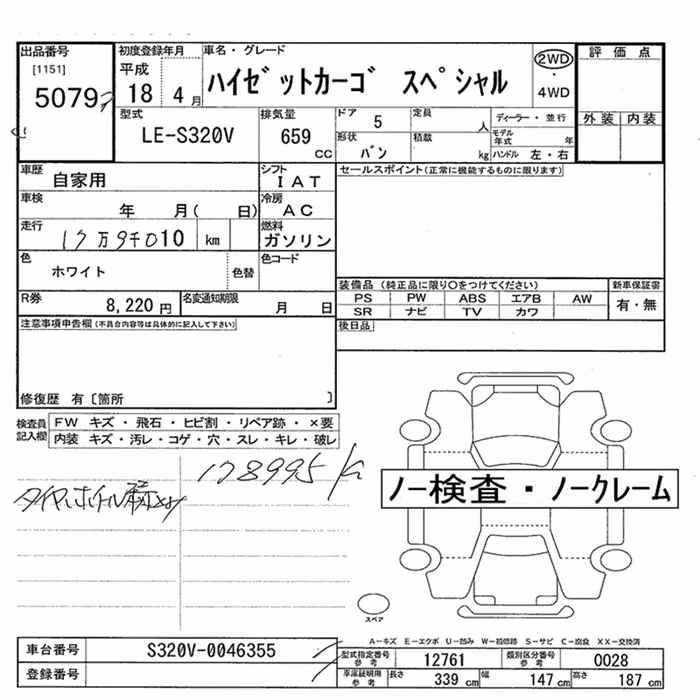 出品番号 初度登録年月 車名・グレード 評価点
[1151] 平成 ハイゼットカーゴ スペシャル 2WD
5079 18 4月 ・ 4WD
型式 排気量 ドア 5 定員 人 ディーラー・並行 外装 内装
LE-S320V 659 CC 形状 バン 積載 kg モデル年式 年 ハンドル 左・右
車歴 自家用 シフト IAT セールスポイント(正常に機能するものに限ります)
車検 年 月( 日) 冷房 AC
走行 17万9千010 km 燃料 ガソリン
色 ホワイト 色替 色コード
装備品 (純正品に限り○をつけてください) 新車保証書
R券 8,220円 名変通知期限 月 日 PS PW ABS エアB AW 有・無
SR ナビ TV カワ
注意事項申告欄(不具合内容等は具体的に記入して下さい) 後日品
修復歴 有〔箇所 〕
検査員記入欄 FW キズ・飛石・ヒビ割・リペア跡・×要
内装 キズ・汚レ・コゲ・穴・スレ・キレ・破レ
178995
ノー検査・ノークレーム
スペア
A-キズ E-エクボ U-凹み W-補修跡 S-サビ C-腐食 XX-交換済
車台番号 S320V-0046355 型式指定番号 参考 12761 類別区分番号 参考 0028
登録番号 車庫証明用 参考 長さ 339 cm 幅 147 cm 高さ 187 cm